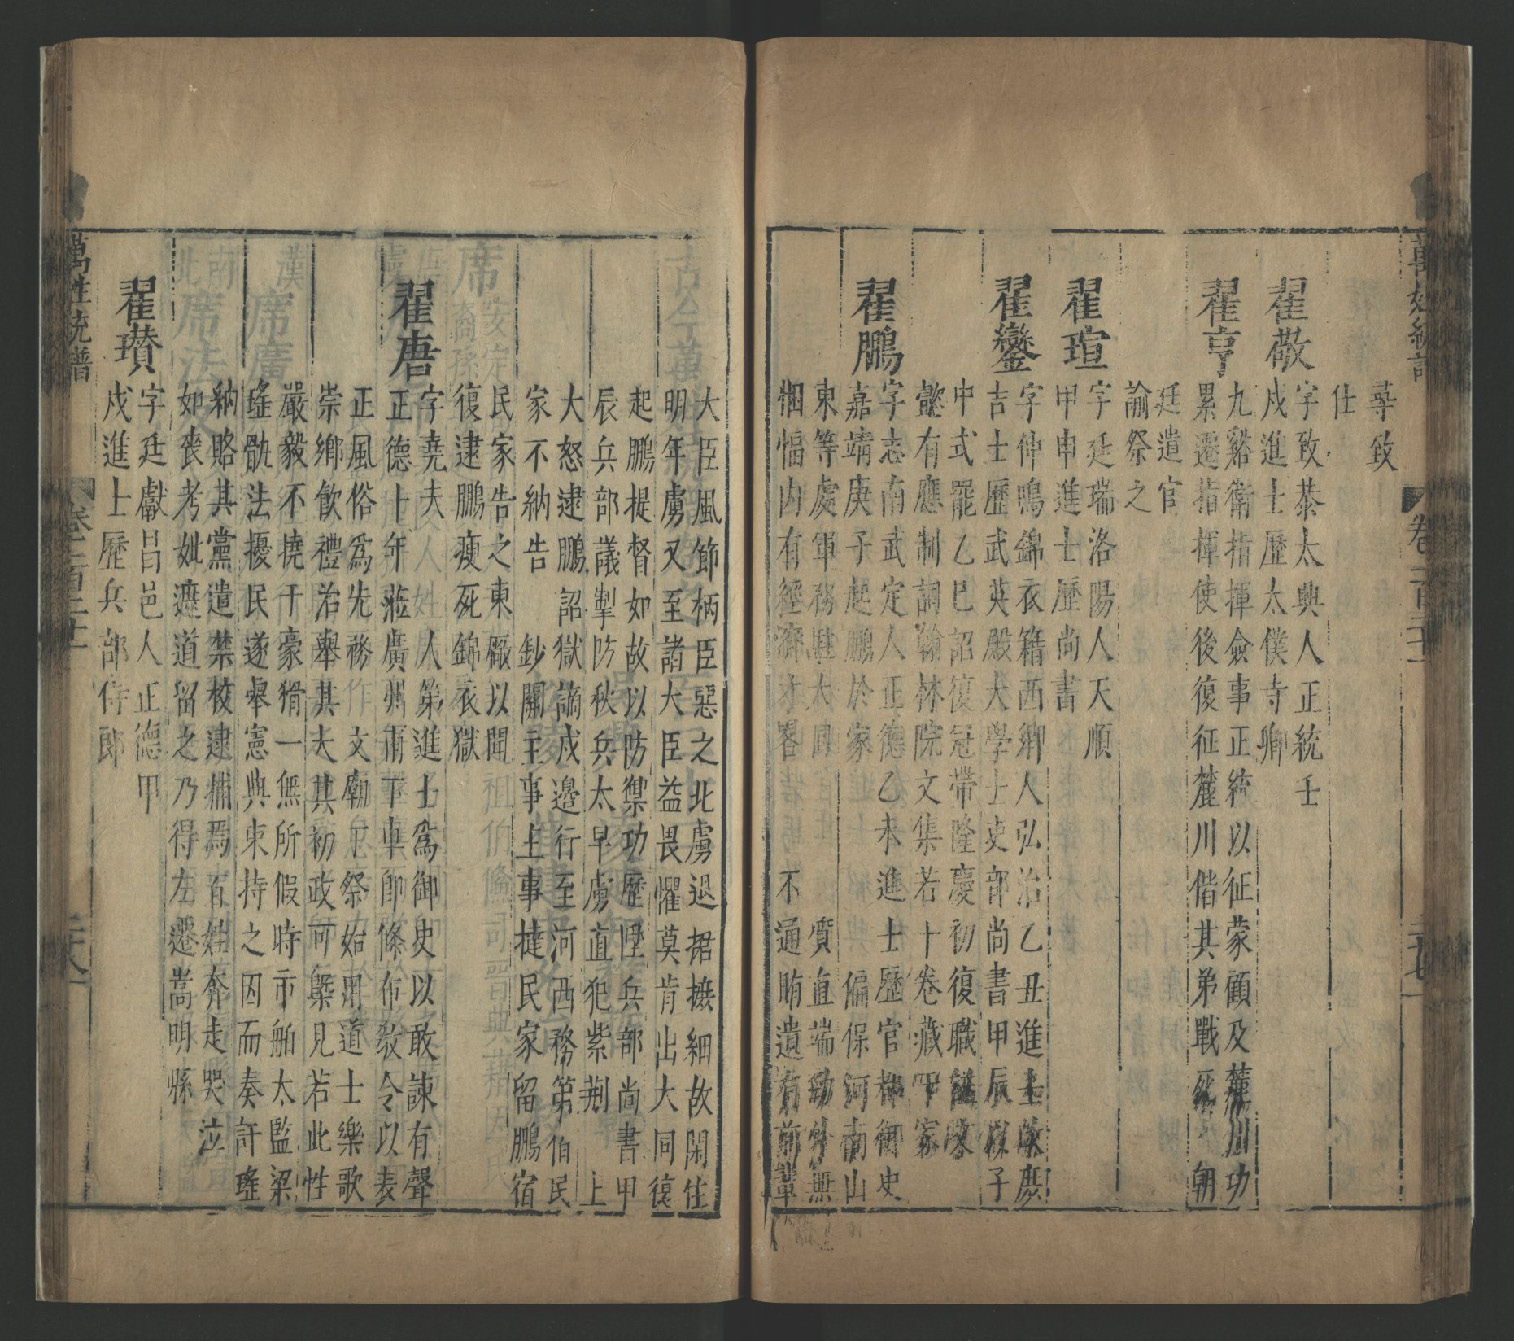 萬姓統譜
卷一百二十
辜致
仕
翟敬
字致恭太興人正統壬
戍進士歷太僕寺卿
翟亨
九谿衛指揮僉事正統以征蒙顧及薤川功
累遷指揮使後復征麓川偕其弟戰死 朝
廷遣官
諭祭之
翟瑄
字廷瑞洛陽人天順
甲申進士歷尚書
翟鑾
字仲鳴錦衣籍西鄉人弘治乙丑進士
吉士歷武英殿大學士吏部尚書甲辰以子
中式罷乙巳詔復冠帶隆慶初復職諡文
懿有應制詞翰林院文集若十卷藏于家
翟鵬
字志南武定人正德乙未進士歷官都御史
嘉靖庚子起鵬於家 偏保河南山
東等處軍務 質直端勁外無
悃愊內有經濟才畧 不通賄遺有前輩
大臣風節柄臣惡之北虜退捃摭細故閑住
明年虜又至諸大臣益畏懼莫肯出大同復
起鵬提督如故以防禦功歷陞兵部尚書甲
辰兵部議掣防秋兵太早虜直犯紫荆 上
大怒逮鵬詔獄謫戍邊行至河西務第伯民
家不納告 鈔關主事上事捷民家留鵬宿
民家告之東廠以聞
復逮鵬瘐死錦衣獄
翟唐
字堯夫 人第進士爲御史以敢諫有聲
正德十年蒞廣州甫下車卽條布敎令以表
正風俗爲先務 文廟 祭始用道士樂歌
崇鄉飲禮治舉其大其初政可槩見若此性
嚴毅不撓于豪猾一無所假時市舶太監梁
瑤骫法擾民遂舉憲典束持之因而奏訐瑤
納賂其黨遣禁校逮捕焉百姓奔走哭泣
如喪考妣遮道留之乃得左遷嵩明縣
翟瓚
字廷獻昌邑人正德甲
戍進士歷兵部侍郎
萬姓統譜
卷一百二十